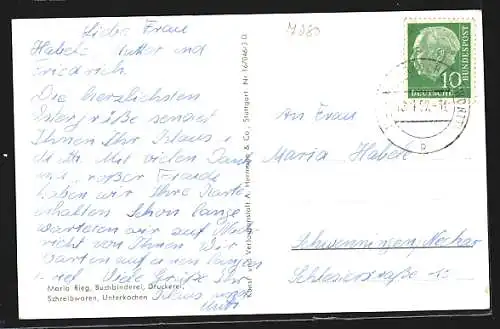 Liebe Frau
Habel Mutter und
Friedrich.
Die herzlichsten
grüße sendet
Ihnen Ihr Klaus u
Mit vielen Dank
und großer Freude
haben wir Ihre Karte
erhalten Schon lange
warteten wir auf
richt von Ihnen Wir
warten auf einen langen
Viele Grüße Ihr
Klaus und
Mutti
Maria Rieg, Buchbinderei, Druckerei,
Schreibwaren, Unterkochen
Kunst- und Verlagsanstalt A. Hermann & Co., Stuttgart Nr. 16/046/3 D
DEUTSCHE
BUNDESPOST
10
An Frau
Maria Habel
Schwenningen, Neckar
Schlesierstraße